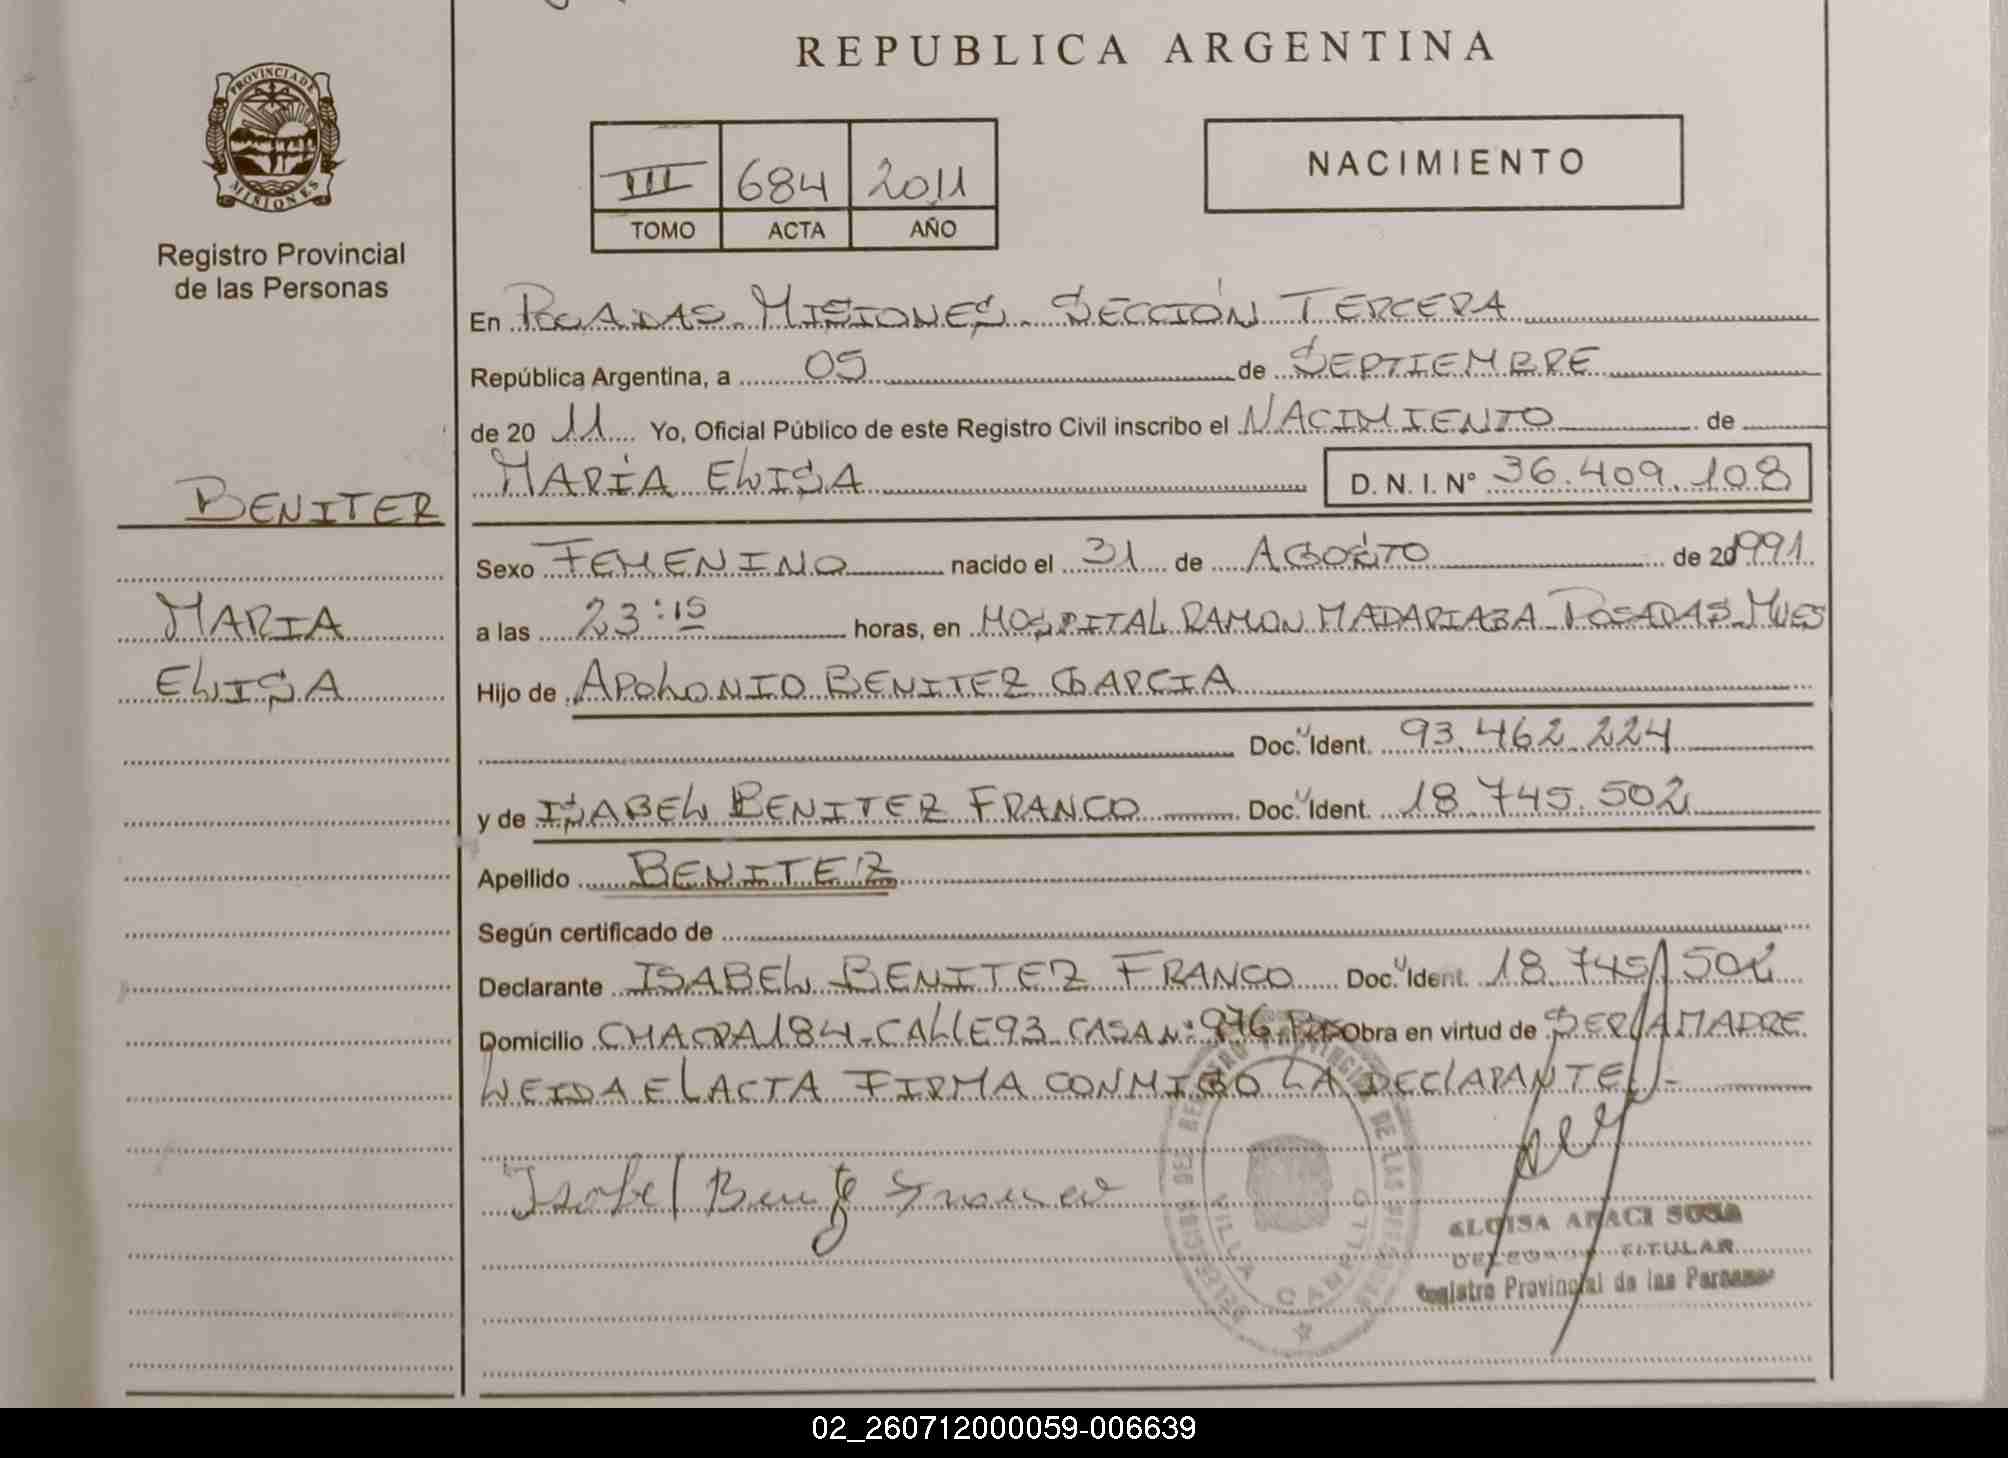 REPUBLICA ARGENTINA
PROVINCIA DE
MISIONES
Registro Provincial
de las Personas
III 684 2011
TOMO ACTA AÑO
NACIMIENTO
En POSADAS-MISIONES-SECCIÓN TERCERA
República Argentina, a 05 de SEPTIEMBRE
de 20 11 Yo, Oficial Público de este Registro Civil inscribo el NACIMIENTO de
MARÍA ELISA D. N. I. Nº 36.409.108
BENITEZ
MARIA
ELISA
Sexo FEMENINO nacido el 31 de AGOSTO de 20 1991
a las 23:15 horas, en HOSPITAL RAMON MADARIAGA-POSADAS-MNES
Hijo de APOLONIO BENITEZ GARCIA
Doc. Ident. 93.462.224
y de ISABEL BENITEZ FRANCO Doc. Ident. 18.745.502
Apellido BENITEZ
Según certificado de
Declarante ISABEL BENITEZ FRANCO Doc. Ident. 18.745.502
Domicilio CHACRA 184-CALLE 93-CASA Nº 976 Obra en virtud de SER LA MADRE
LEIDA EL ACTA FIRMA CONMIGO LA DECLARANTE.-
Isabel Benitez Franco
VILLA CABELLO
ALOISA ARACI SOSA
DELEGADA TITULAR
Registro Provincial de las Personas
02_260712000059-006639